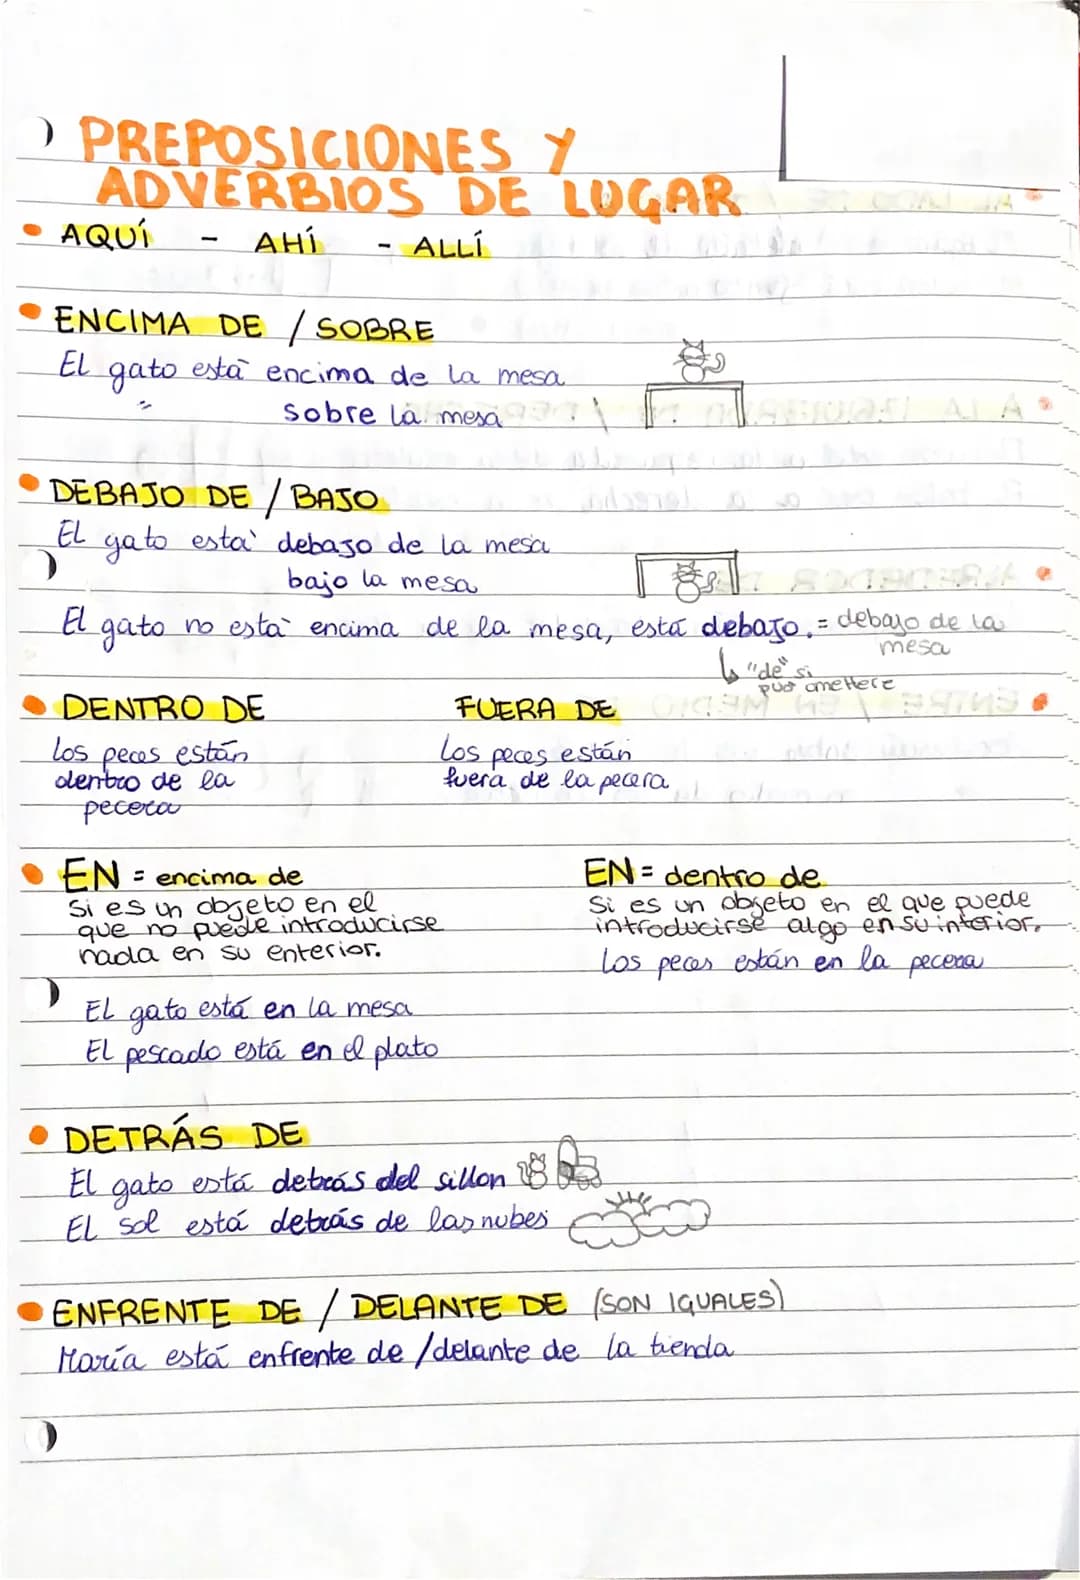 PREPOSICIONES Y
ADVERBIOS DE LUGAR
AQUÍ - AHÍ - ALLÍ
ENCIMA DE / SOBRE
El gato està encima de la mesa
" sobre la mesa
DEBAJO DE / BAJO
El gato està debajo de la mesa
bajo la mesa
El gato no està encima de la mesa, está debajo. = debajo de la
mesa
↳ "de" si
può omettere
DENTRO DE
FUERA DE
Los peces están
dentro de la
pecera
Los peces están
fuera de la pecera
EN = encima de
Si es un objeto en el
que no puede introducirse
nada en su enterior.
El gato está en la mesa
El pescado está en el plato
EN = dentro de
Si es un objeto en el que puede
introducirse algo en su interior.
Los peces están en la pecera
DETRÁS DE
El gato está detrás del sillon
El sol está detrás de las nubes
ENFRENTE DE / DELANTE DE (SON IGUALES)
María está enfrente de /delante de la tienda